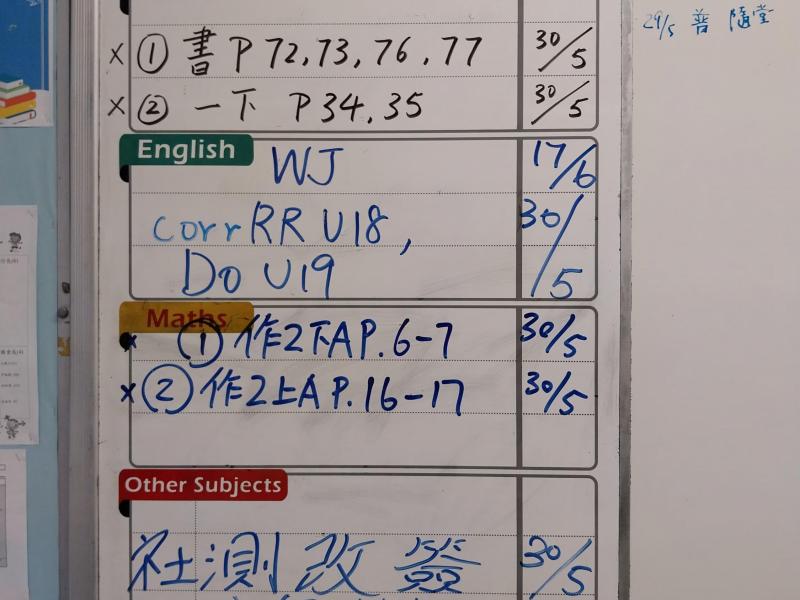 × ① 書 P 72, 73, 76, 77 30/5
× ② 一下 P 34, 35 30/5
English
WJ 17/6
corr RR U18,
Do U19 30/5
Maths
× ① 作2下A P. 6-7 30/5
× ② 作2上A P. 16-17 30/5
Other Subjects
社測改簽 30/5
29/5 普 隨堂